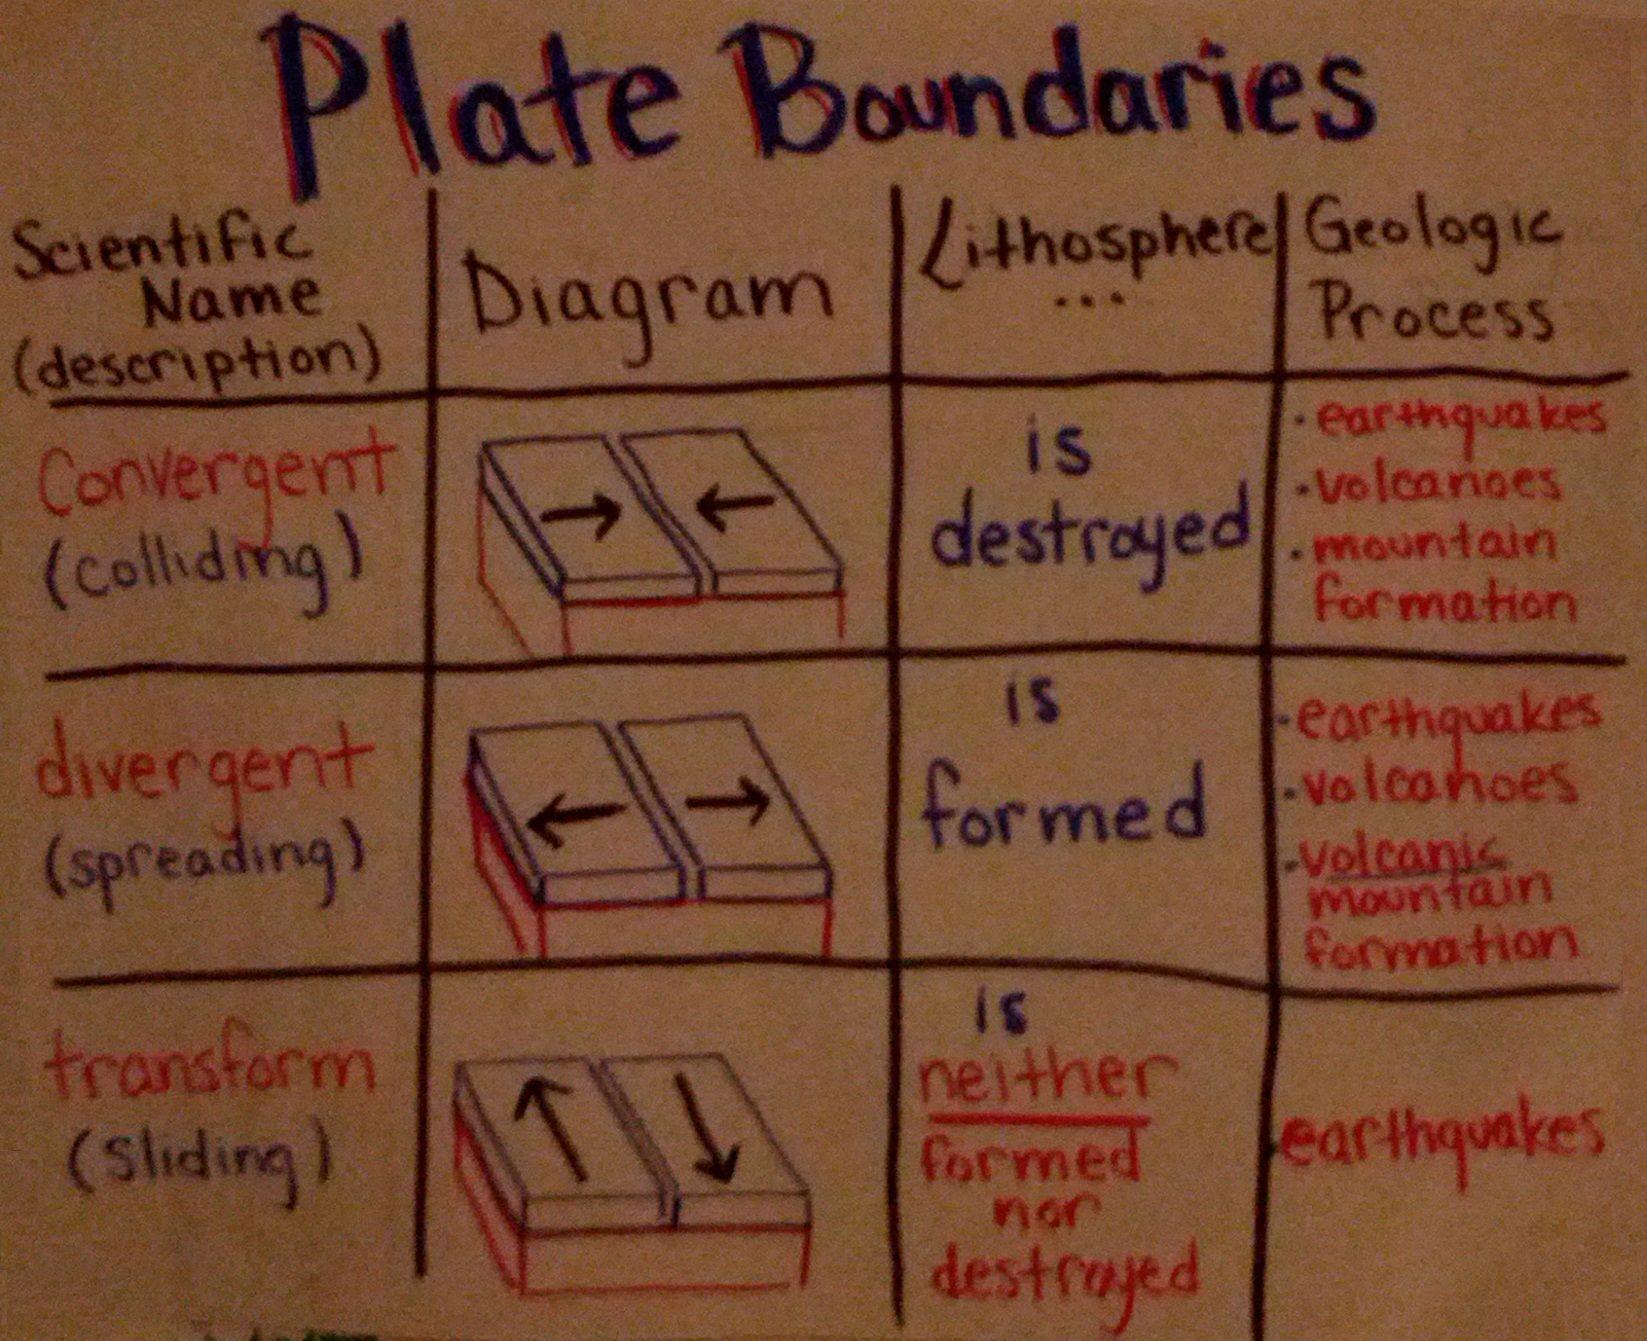 Plate Boundaries
Scientific
Name
(description)
Diagram
Lithosphere
...
Geologic
Process
Convergent
(colliding)
is
destroyed
• earthquakes
• volcanoes
• mountain
formation
divergent
(spreading)
is
formed
• earthquakes
• volcanoes
• volcanic
mountain
formation
transform
(sliding)
is
neither
formed
nor
destroyed
• earthquakes